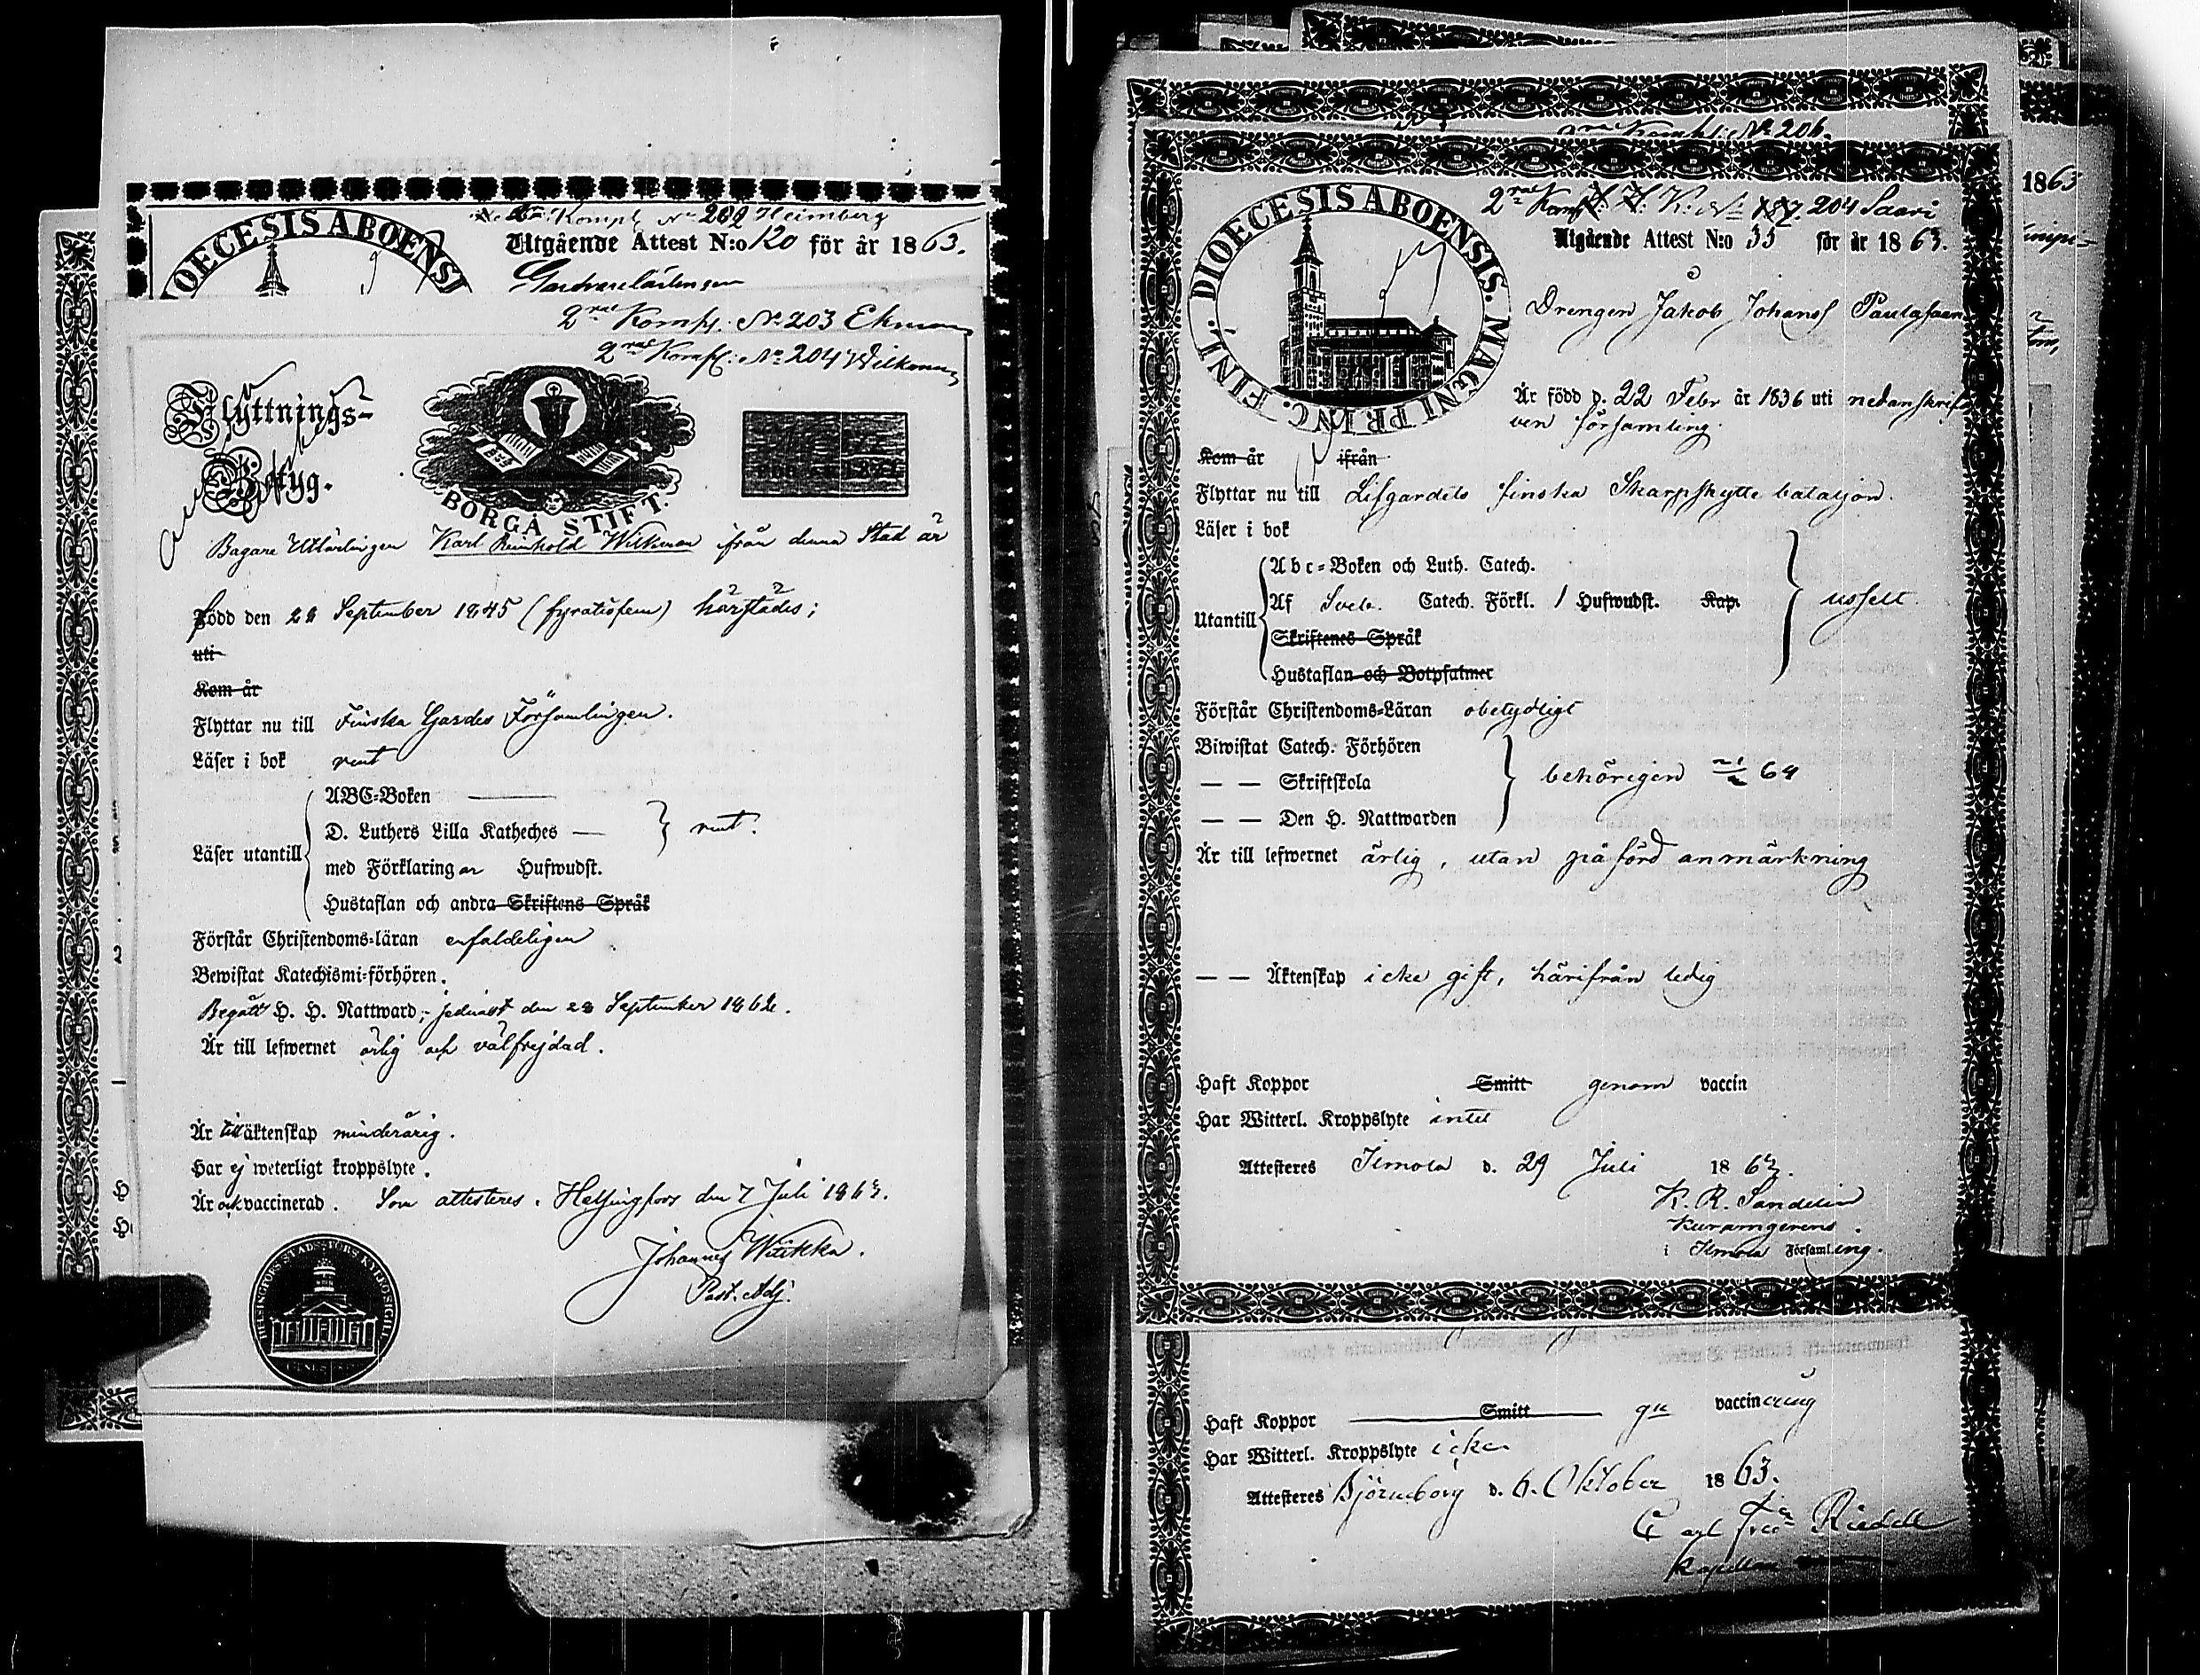 DIOECESIS ABOENSI
2ra Komp. No 202 Heimberg
Utgående Attest N:o 120 för år 1863.
2ra Komp. No 203 Ekman
2ra Komp: No 204 Wilkman
Flyttnings-
Betyg.
BORGÅ STIFT.
Bagare Utlärlingen Karl Reinhold Wilkman ifrån denna Stad är
Född den 28 September 1845 (fyratiofem) härstädes;
uti
Kom år
Flyttar nu till Finska Gardes Församlingen.
Läser i bok rent
ABC-Boken
D. Luthers Lilla Katheches
Läser utantill rent.
med Förklaringar Hufwudst.
Hustaflan och andra Skriftens Språk
Förstår Christendoms-läran enfaldeligen
Bewistat Katechismi-förhören.
Begått H. H. Nattward, sednast den 28 September 1862.
Är till lefwernet ärlig och välfrejdad.
Är till äktenskap minderårig.
Har ej weterligt kroppslyte.
Är ock vaccinerad. Som attesteres. Helsingfors den 7 Juli 1863.
Johannes Witikka.
Past. Adj.
No 206.
1863
DIOECESIS ABOENSIS. MAGNI PRINC. FINL.
2ra Komp. No 187. 204 Saari
Utgående Attest N:o 33 för år 1863.
Drengen Jakob Johans
Är född d. 22 Febr år 1836 uti nedanskrif
ven församling.
Kom år ifrån
Flyttar nu till Lifgardets finska Skarpskytte bataljon.
Läser i bok
Abc-Boken och Luth. Catech.
Utantill Af Sveb. Catech. Förkl. 1 Hufwudst. Kap. usselt.
Skriftenes Språk
Hustaflan och Botpsalmer
Förstår Christendoms-Läran obetydligt
Biwistat Catech. Förhören
— — Skriftskola behörigen
— — Den H. Nattwarden
Är till lefwernet ärlig, utan påförd anmärkning
— — Äktenskap icke gift, härifrån ledig
Haft Koppor Smitt genom vaccin
Har Witterl. Kroppslyte intet
Attesteres Ilmola d. 29 Juli 1863.
K. R. Sandelin
i Ilmola Församling.
Haft Koppor Smitt gm vaccinering
Har Witterl. Kroppslyte icke
Attesteres Björneborg d. 6. Oktober 1863.
Carl Fredr Riedell
Kapellan